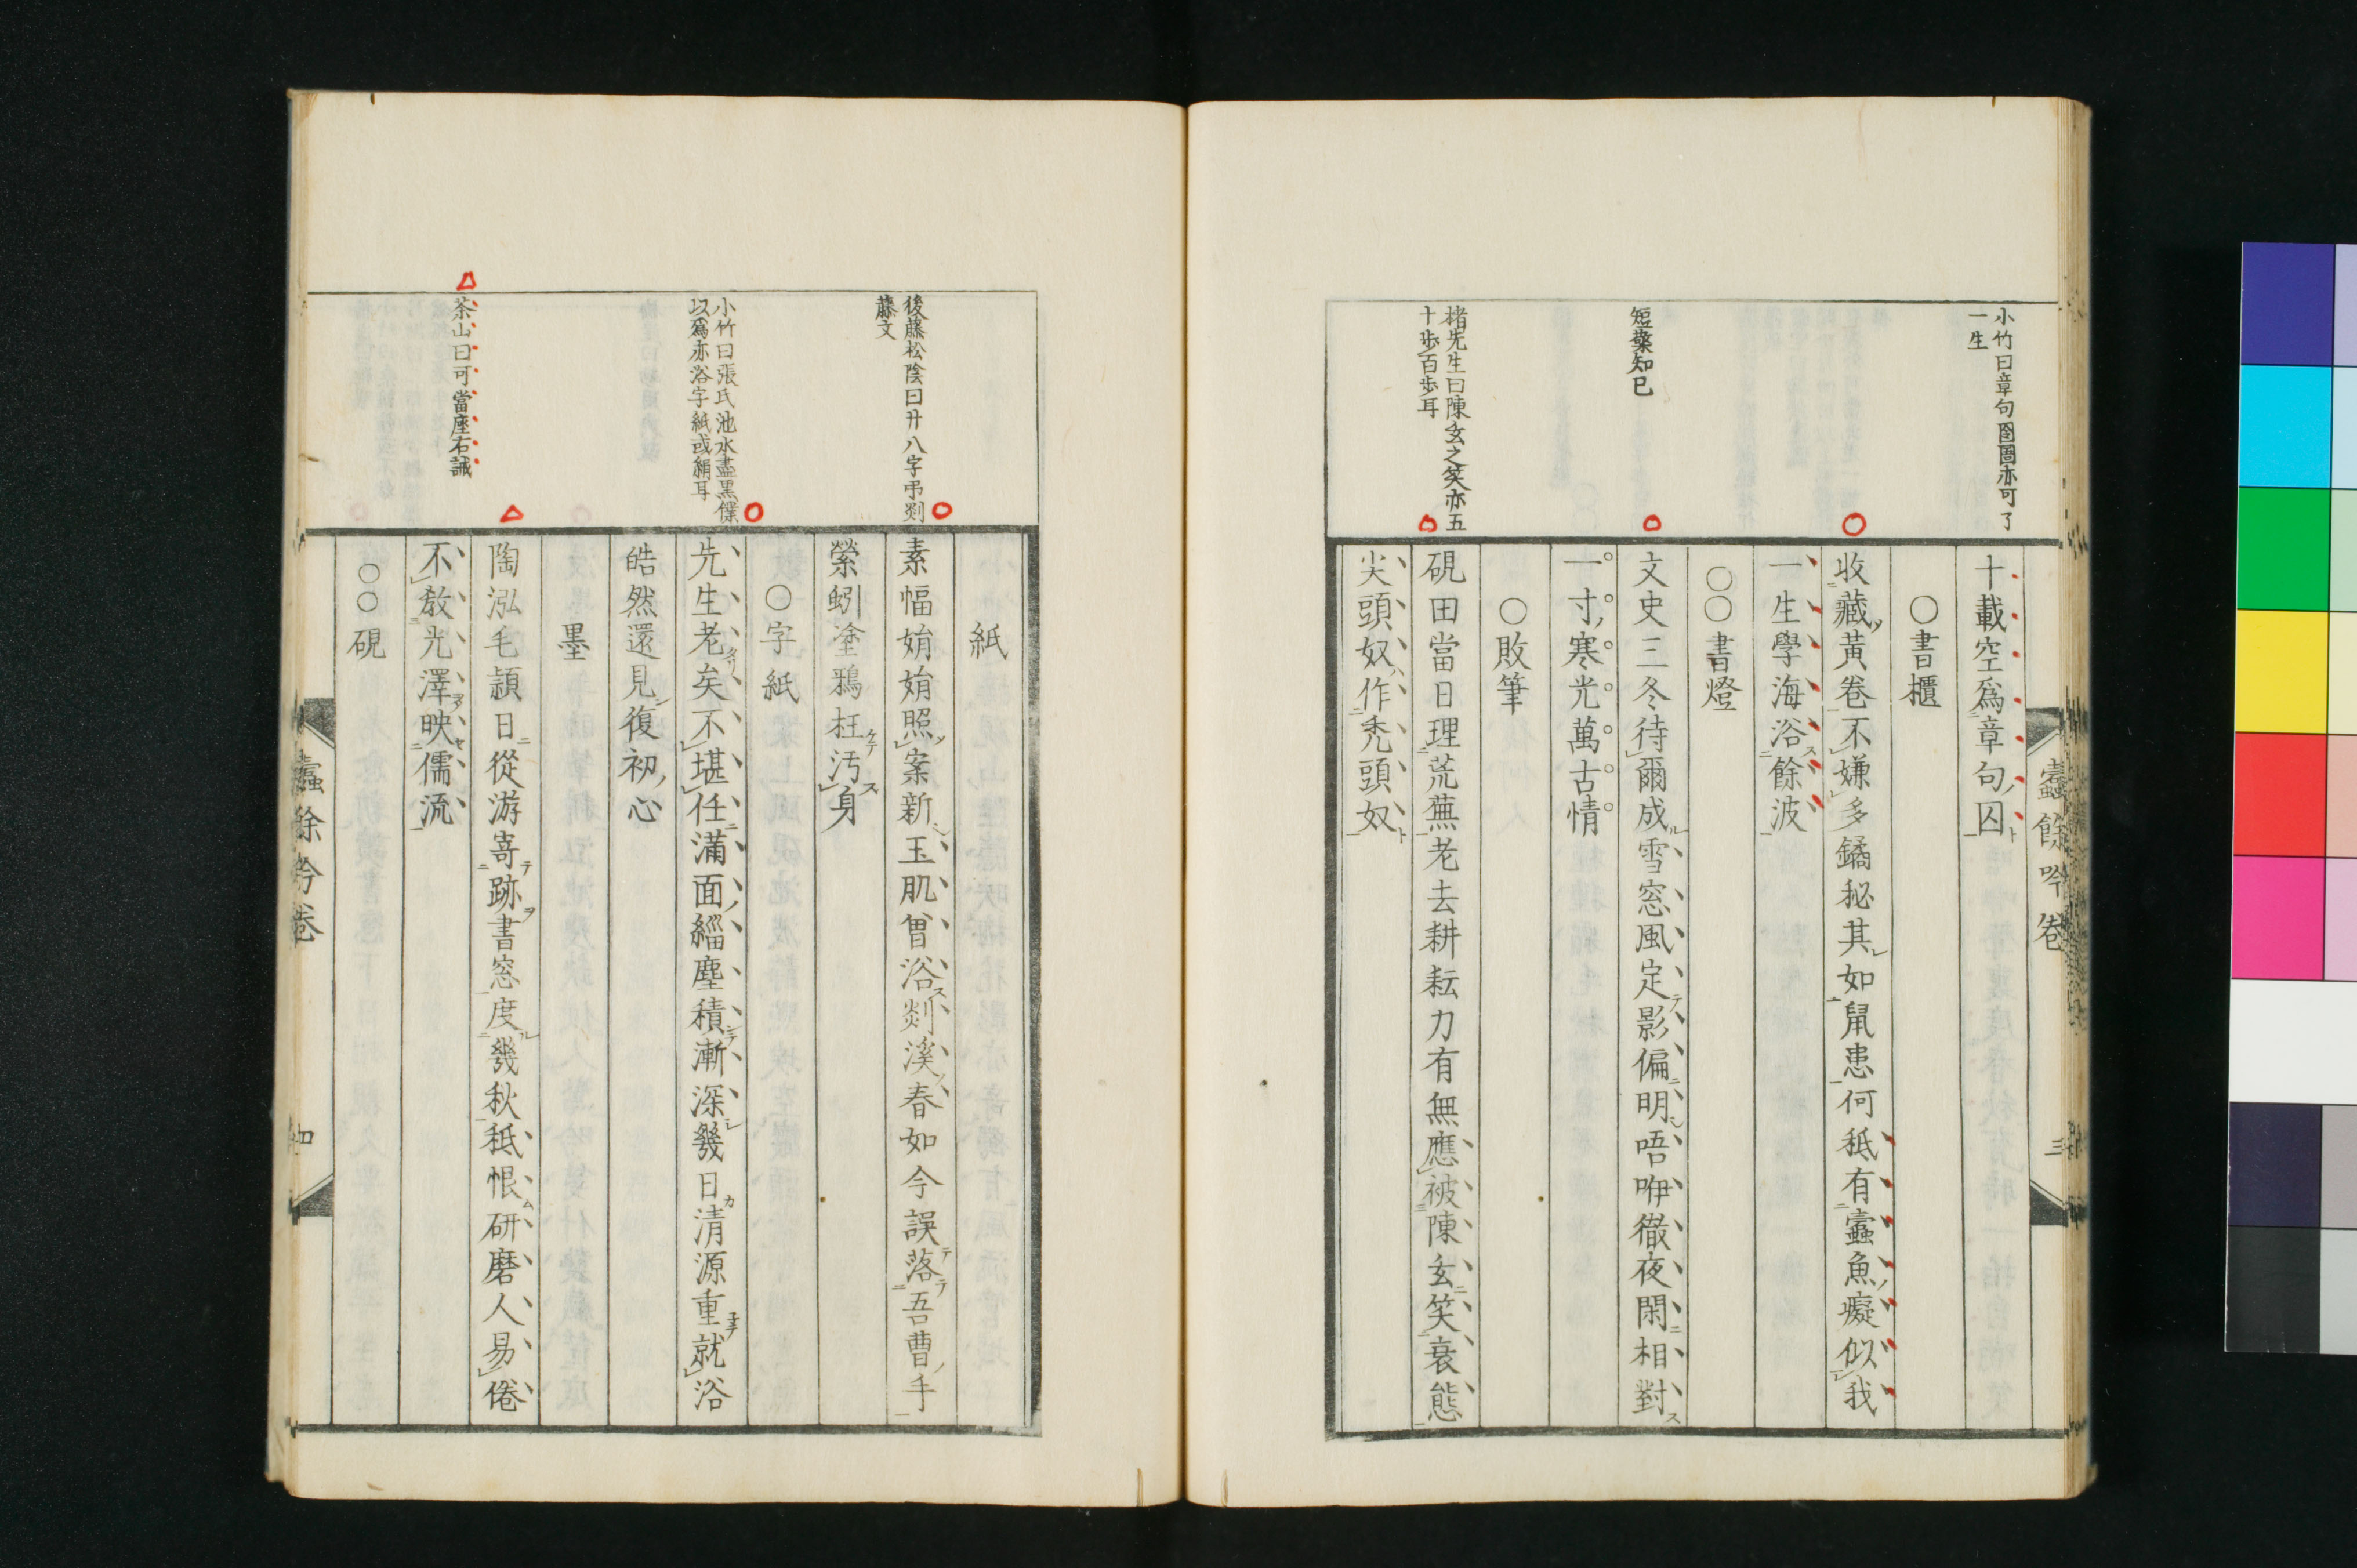 小竹曰章句囹圄亦可了
一生
短檠知己
楮先生曰陳玄之笑亦五
十步百步耳
蠧餘吟卷
三
十載空爲章句囚
○書櫃
收藏黃卷不嫌多鐍秘其如鼠患何秪有蠧魚癡似我
一生學海浴餘波
○○書燈
文史三冬待爾成雪窓風定影偏明唔咿徹夜閑相對
一寸寒光萬古情
○敗筆
硯田當日理荒蕪老去耕耘力有無應被陳玄笑衰態
尖頭奴作禿頭奴
後藤松陰曰廿八字弔剡
藤文
小竹曰張氏池水盡黑僕
以爲亦浴字紙或絹耳
茶山曰可當座右誡
紙
素幅娟娟照案新玉肌曾浴剡溪春如今誤落吾曹手
縈蚓塗鴉枉汚身
○字紙
先生老矣不堪任滿面緇塵積漸深幾日清源重就浴
皓然還見復初心
墨
陶泓毛穎日從游寄跡書窓度幾秋秪恨研磨人易倦
不教光澤映儒流
○○硯
蠧餘吟卷
四